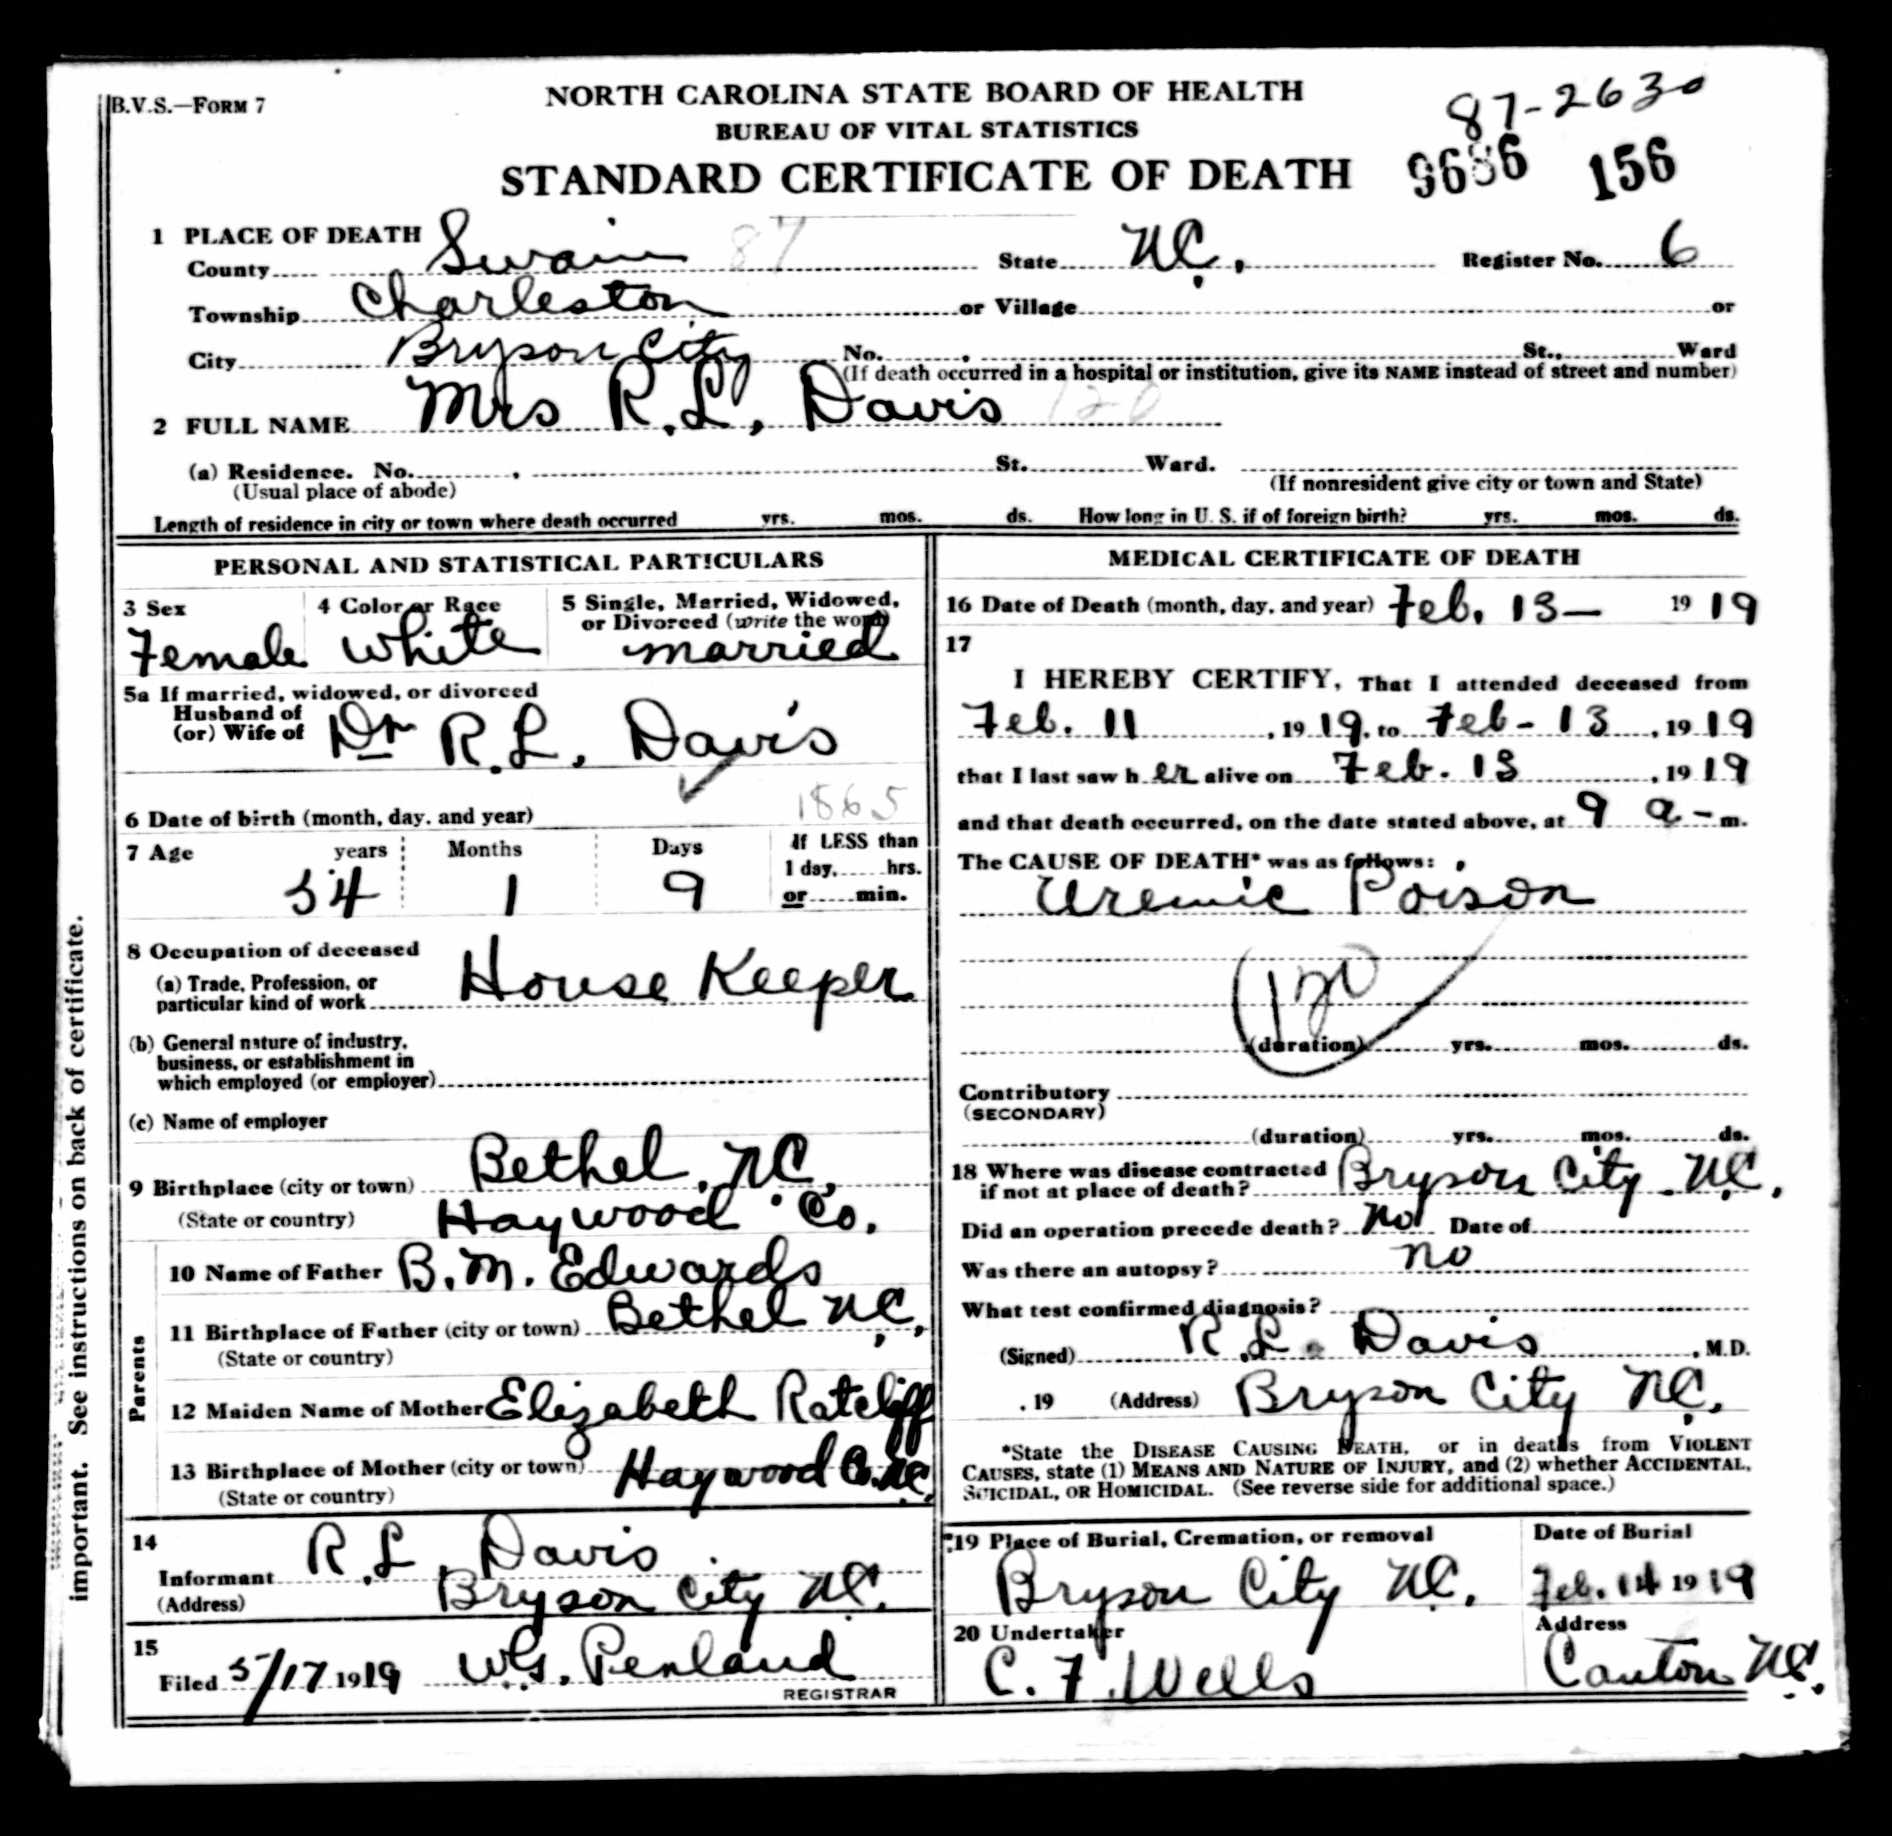 B.V.S.—FORM 7
NORTH CAROLINA STATE BOARD OF HEALTH
BUREAU OF VITAL STATISTICS
STANDARD CERTIFICATE OF DEATH
87-2630
156
1 PLACE OF DEATH
County Swain 87 State N.C. Register No. 6
Township Charleston or Village or
City Bryson City No. , St., Ward
(If death occurred in a hospital or institution, give its NAME instead of street and number)
2 FULL NAME Mrs R.L. Davis 120
(a) Residence. No. , St. Ward.
(Usual place of abode) (If nonresident give city or town and State)
Length of residence in city or town where death occurred yrs. mos. ds. How long in U. S. if of foreign birth? yrs. mos. ds.
PERSONAL AND STATISTICAL PARTICULARS
3 Sex 4 Color or Race 5 Single, Married, Widowed, or Divorced (write the word)
Female White married
5a If married, widowed, or divorced
Husband of
(or) Wife of Dr R.L. Davis
6 Date of birth (month, day, and year) 1865
7 Age years Months Days If LESS than
1 day, hrs.
or min.
54 1 9
8 Occupation of deceased
(a) Trade, Profession, or
particular kind of work House Keeper
(b) General nature of industry,
business, or establishment in
which employed (or employer)
(c) Name of employer
9 Birthplace (city or town) Bethel, N.C.
(State or country) Haywood Co.
Parents
10 Name of Father B.M. Edwards
11 Birthplace of Father (city or town) Bethel N.C.
(State or country)
12 Maiden Name of Mother Elizabeth Ratcliff
13 Birthplace of Mother (city or town) Haywood Co. N.C.
(State or country)
14
Informant R.L. Davis
(Address) Bryson City N.C.
15
Filed 5/17 1919 W.G. Penland
REGISTRAR
MEDICAL CERTIFICATE OF DEATH
16 Date of Death (month, day, and year) Feb. 13— 19 19
17
I HEREBY CERTIFY, That I attended deceased from
Feb. 11 , 19 19, to Feb - 13 , 19 19
that I last saw h er alive on Feb. 13 , 19 19
and that death occurred, on the date stated above, at 9 a - m.
The CAUSE OF DEATH* was as follows:
Uremic Poison
120
(duration) yrs. mos. ds.
Contributory
(SECONDARY)
(duration) yrs. mos. ds.
18 Where was disease contracted
if not at place of death? Bryson City N.C.
Did an operation precede death? no Date of
Was there an autopsy? no
What test confirmed diagnosis?
(Signed) R.L. Davis , M.D.
, 19 (Address) Bryson City N.C.
*State the DISEASE CAUSING DEATH, or in deaths from VIOLENT
CAUSES, state (1) MEANS AND NATURE OF INJURY, and (2) whether ACCIDENTAL,
SUICIDAL, OR HOMICIDAL. (See reverse side for additional space.)
19 Place of Burial, Cremation, or removal Date of Burial
Bryson City N.C. Feb. 14 19 19
20 Undertaker Address
C. F. Wells Canton N.C.
important. See instructions on back of certificate.